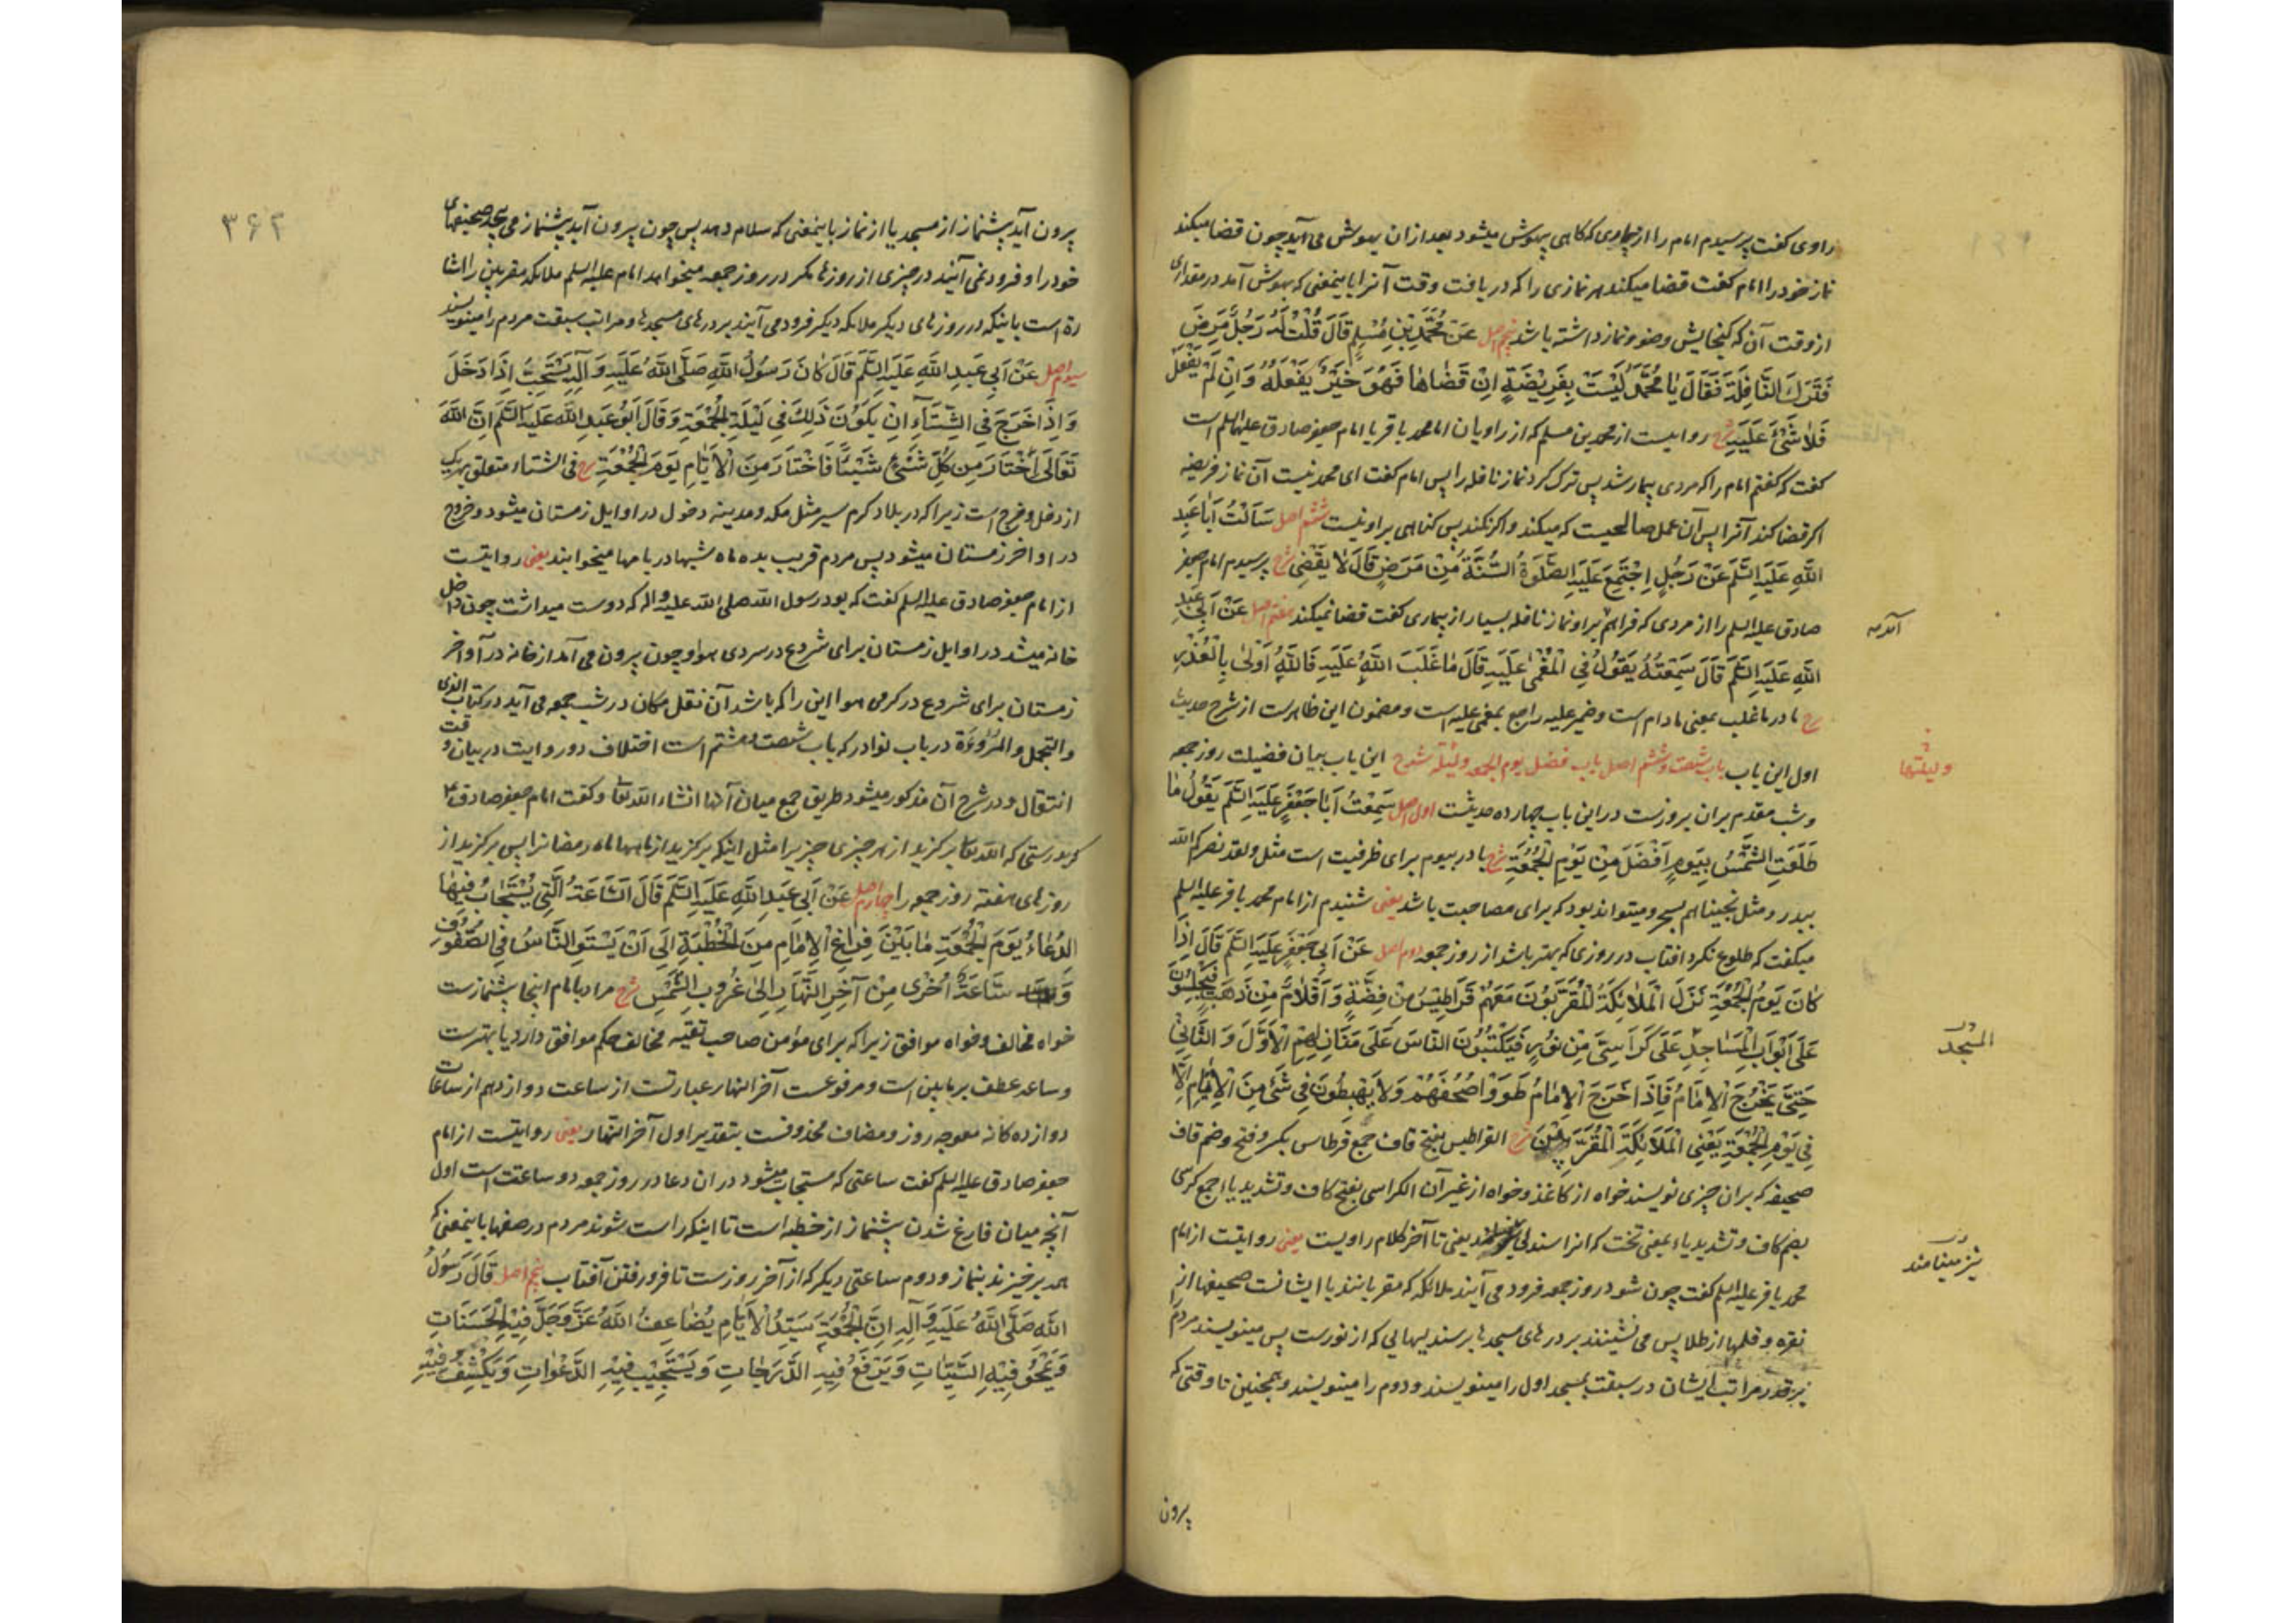 راوی گفت پرسیدم امام را از بیماری که گاهی بیهوش میشود بعد ازان بهوش می آید چون قضا میکند
نماز خود را امام گفت قضا میکند هر نمازی را که دریافت وقت آنرا باینمعنی که بهوش آمد در مقداری
از وقت آن که گنجایش وضو و نماز داشته باشد پنجم اصل عَنْ مُحَمَّدِ بْنِ مُسْلِمٍ قَالَ قُلْتُ لَهُ رَجُلٌ مَرِضَ
فَتَرَكَ النَّافِلَةَ فَقَالَ يَا مُحَمَّدُ لَيْسَتْ بِفَرِيضَةٍ اِنْ قَضَاهَا فَهُوَ خَيْرٌ يَفْعَلُهُ وَاِنْ لَمْ يَفْعَلْ
فَلَا شَيْءَ عَلَيْهِ شرح روایتست از محمد بن مسلم که از راویان امام محمد باقر یا امام جعفر صادق علیهما السلم است
گفت که گفتم امام را که مردی بیمار شد پس ترک کرد نماز نافله را پس امام گفت ای محمد نیست آن نماز فریضه
اگر قضا کند آنرا پس آن عمل صالحیست که میکند و اگر نکند پس گناهی بر او نیست ششم اصل سَأَلْتُ اَبَا عَبْدِ
اللّٰهِ عَلَيْهِ السَّلَمُ عَنْ رَجُلٍ اِجْتَمَعَ عَلَيْهِ الصَّلٰوةُ السُّنَّةُ مِنْ مَرَضٍ قَالَ لَا يَقْضِي شرح پرسیدم امام جعفر
صادق علیه السلم را از مردی که فراهم بر او نماز نافله بسیار از بیماری گفت قضا نمیکند هفتم اصل عَنْ اَبِي عَبْدِ
آمده
اللّٰهِ عَلَيْهِ السَّلَمُ قَالَ سَمِعْتُهُ يَقُولُ فِي الْمُغْمٰى عَلَيْهِ قَالَ مَا غَلَبَ اللّٰهُ عَلَيْهِ فَاللّٰهُ اَوْلٰى بِالْعُذْرِ
شرح ما در ما غلب بمعنی مادام است و ضمیر علیه راجع بمغمی علیه است و مضمون این ظاهرست از شرح حدیث
اول این باب باب شصت و ششم اصل باب فضل یوم الجمعه و لیلته شرح این باب بیان فضیلت روز جمعه
ولیلتها
و شب مقدم بران بروزست درین باب چهارده حدیثست اول اصل سَمِعْتُ اَبَا جَعْفَرٍ عَلَيْهِ السَّلَمُ يَقُولُ مَا
طَلَعَتِ الشَّمْسُ بِيَوْمٍ اَفْضَلَ مِنْ يَوْمِ الْجُمُعَةِ شرح با در بیوم برای ظرفیت است مثل ولقد نصرکم اللّٰه
ببدر و مثل نجیناهم بسحر و میتواند بود که برای مصاحبت باشد یعنی شنیدم از امام محمد باقر علیه السلم
میگفت که طلوع نکرد افتاب در روزی که بهتر باشد از روز جمعه دوم اصل عَنْ اَبِي جَعْفَرٍ عَلَيْهِ السَّلَمُ قَالَ اِذَا
كَانَ يَوْمُ الْجُمُعَةِ نَزَلَ الْمَلَائِكَةُ الْمُقَرَّبُونَ مَعَهُمْ قَرَاطِيسُ مِنْ فِضَّةٍ وَاَقْلَامٌ مِنْ ذَهَبٍ فَيَجْلِسُونَ
عَلَى اَبْوَابِ الْمَسَاجِدِ عَلَى كَرَاسِيَّ مِنْ نُورٍ فَيَكْتُبُونَ النَّاسَ عَلَى مَنَازِلِهِمْ الْاَوَّلَ وَالثَّانِيَ
المسجد
حَتَّى يَخْرُجَ الْاِمَامُ فَاِذَا خَرَجَ الْاِمَامُ طَوَوْا صُحُفَهُمْ وَلَا يَهْبِطُونَ فِي شَيْءٍ مِنَ الْاَيَّامِ اِلَّا
فِي يَوْمِ الْجُمُعَةِ يَعْنِي الْمَلَائِكَةَ الْمُقَرَّبِينَ شرح القراطیس بفتح قاف جمع قرطاس بکسر و فتح و ضم قاف
صحیفه که بران چیزی نویسند خواه از کاغذ و خواه از غیر آن الکراسی بفتح کاف و تشدید یاء جمع کرسی
بضم کاف و تشدید یاء بمعنی تخت که انرا سندلی یعنی تا آخر کلام راویست یعنی روایتست از امام
نیز مینامند
محمد باقر علیه السلم گفت چون شود روز جمعه فرود می آیند ملائکه که مقربانند با ایشانست صحیفها از
نقره و قلمها از طلا پس می نشینند بر درهای مسجدها بر سندلیهایی که از نورست پس مینویسند مردم
بر قدر مراتب ایشان در سبقت بمسجد اول را مینویسند و دوم را مینویسند و همچنین تا وقتی که
بیرون
۳۶۲
بیرون آید پیشنماز از مسجد یا از نماز باینمعنی که سلام دهد پس چون بیرون آید پیشنماز می پیچند صحیفهای
خود را و فرود نمی آیند در چیزی از روزها مگر در روز جمعه میخواهد امام علیه السلم ملائکه مقربین را اشا
رة است باینکه در روزهای دیگر ملائکه دیگر فرود می آیند بر درهای مسجدها و مراتب سبقت مردم را مینویسند
سیوم اصل عَنْ اَبِي عَبْدِ اللّٰهِ عَلَيْهِ السَّلَمُ قَالَ كَانَ رَسُولُ اللّٰهِ صَلَّى اللّٰهُ عَلَيْهِ وَآلِهِ يَسْتَحِبُّ اِذَا دَخَلَ
وَاِذَا خَرَجَ فِي الشِّتَاءِ اَنْ يَكُونَ ذٰلِكَ فِي لَيْلَةِ الْجُمُعَةِ وَقَالَ اَبُو عَبْدِ اللّٰهِ عَلَيْهِ السَّلَمُ اِنَّ اللّٰهَ
تَعَالٰى اخْتَارَ مِنْ كُلِّ شَيْءٍ شَيْئًا فَاخْتَارَ مِنَ الْاَيَّامِ يَوْمَ الْجُمُعَةِ شرح فی الشتاء متعلق بهریک
از دخل و خرج است زیرا که در بلاد گرم سیر مثل مکه و مدینه دخول در اوایل زمستان میشود و خروج
در اواخر زمستان میشود پس مردم قریب بده ماه شبها در بامها میخوابند یعنی روایتست
از امام جعفر صادق علیه السلم گفت که بود رسول اللّٰه صلی اللّٰه علیه و اله که دوست میداشت چون داخل
خانه میشد در اوایل زمستان برای شروع در سردی هوا و چون بیرون می آمد از خانه در آواخر
زمستان برای شروع در گرمی هوا این را که باشد آن نقل مکان در شب جمعه می آید در کتاب الزی
والتجمل والمروءة در باب نوادر که باب شصت و هشتم است اختلاف دو روایت در بیان وقت
انتقال و در شرح آن مذکور میشود طریق جمع میان آنها انشاء اللّٰه تعا و گفت امام جعفر صادق ع
که بدرستی که اللّٰه تعا برگزید از هر چیزی چیزیرا مثل اینکه برگزید از ماهها ماه رمضانرا پس برگزید از
روزهای هفته روز جمعه را چهارم اصل عَنْ اَبِي عَبْدِ اللّٰهِ عَلَيْهِ السَّلَمُ قَالَ السَّاعَةُ الَّتِي يُسْتَجَابُ فِيهَا
الدُّعَاءُ يَوْمَ الْجُمُعَةِ مَا بَيْنَ فِرَاغِ الْاِمَامِ مِنَ الْخُطْبَةِ اِلَى اَنْ يَسْتَوِيَ النَّاسُ فِي الصُّفُوفِ
وَ سَاعَةٌ اُخْرٰى مِنْ آخِرِ النَّهَارِ اِلٰى غُرُوبِ الشَّمْسِ شرح مراد بامام اینجا پیشنمازست
خواه مخالف و خواه موافق زیرا که برای مؤمن صاحب تقیه مخالف حکم موافق دارد یا بهترست
و ساعه عطف بر مابین است و مرفوعست آخر النهار عبارتست از ساعت دوازدهم از ساعات
دوازده گانه معوجه روز و مضاف محذوفست بتقدیر اول آخر النهار یعنی روایتست از امام
جعفر صادق علیه السلم گفت ساعتی که مستجاب میشود در ان دعا در روز جمعه دو ساعتست اول
آنچه میان فارغ شدن پیشنماز از خطبه است تا اینکه راست شوند مردم در صفها باینمعنی که
همه برخیزند بنماز و دوم ساعتی دیگر که از آخر روزست تا فرو رفتن آفتاب پنجم اصل قَالَ رَسُولُ
اللّٰهِ صَلَّى اللّٰهُ عَلَيْهِ وَآلِهِ اِنَّ الْجُمُعَةَ سَيِّدُ الْاَيَّامِ يُضَاعِفُ اللّٰهُ عَزَّ وَجَلَّ فِيْهِ الْحَسَنَاتِ
وَيَمْحُو فِيْهِ السَّيِّئَاتِ وَيَرْفَعُ فِيْهِ الدَّرَجَاتِ وَيَسْتَجِيْبُ فِيْهِ الدَّعَوَاتِ وَيَكْشِفُ فِيْهِ